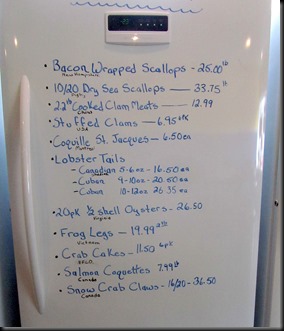 • Bacon Wrapped Scallops - 25.00 lb
• 10/20 Dry Sea Scallops — 33.75 lb
• 22 lb Cooked Clam Meats - 12.99
China
• Stuffed Clams - 6.95 6PK
USA
• Coquille St. Jacques - 6.50 ea
• Lobster Tails
- Canadian 5-6oz - 16.50 ea
- Cuban 9-10oz - 20.50 ea
- Cuban 10-12oz 26.35 ea
• 20pk ½ shell Oysters - 26.50
Virginia
• Frog Legs - 19.99
Vietnam
• Crab Cakes - 11.50 4pk
• Salmon Coquettes 7.99 lb
Canada
• Snow Crab Claws - 16/20 - 36.50
Canada